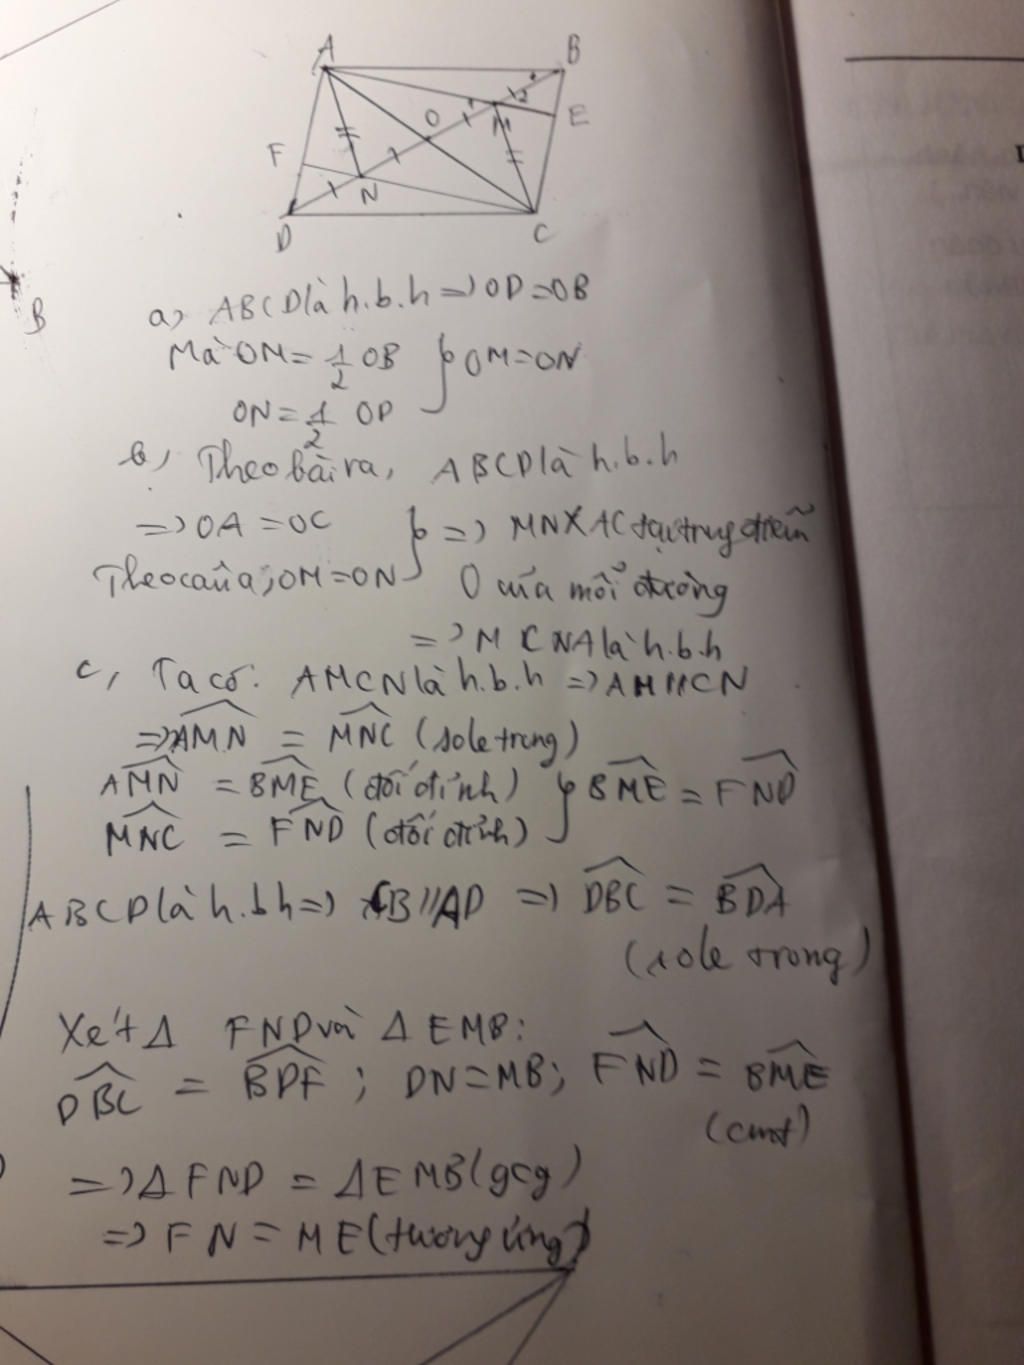 A
B
O
1
2
M
E
F
N
D
C
B
a, ABCD là h.b.h => OD = OB
Mà OM = 1/2 OB } OM = ON
ON = 1/2 OD
b, Theo bài ra, ABCD là h.b.h
=> OA = OC } => MN X AC tại trung điểm
Theo câu a; OM = ON O của mỗi đường
=> MCNA là h.b.h
c, Ta có: AMCN là h.b.h => AM // CN
=> \widehat{AMN} = \widehat{MNC} (sole trong)
\widehat{AMN} = \widehat{BME} (đối đỉnh) } \widehat{BME} = \widehat{FND}
\widehat{MNC} = \widehat{FND} (đối đỉnh)
ABCD là h.bh => CB // AD => \widehat{DBC} = \widehat{BDA}
(sole trong)
Xét Δ FND và Δ EMB:
\widehat{DBC} = \widehat{BDF}; DN = MB; \widehat{FND} = \widehat{BME}
(cmt)
=> Δ FND = Δ EMB (gcg)
=> FN = ME (tương ứng)